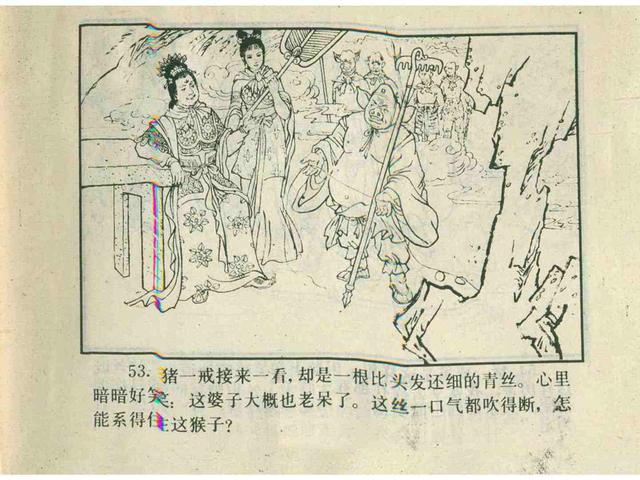 53. 猪一戒接来一看,却是一根比头发还细的青丝。心里
暗暗好笑:这婆子大概也老呆了。这丝一口气都吹得断,怎
能系得住这猴子?